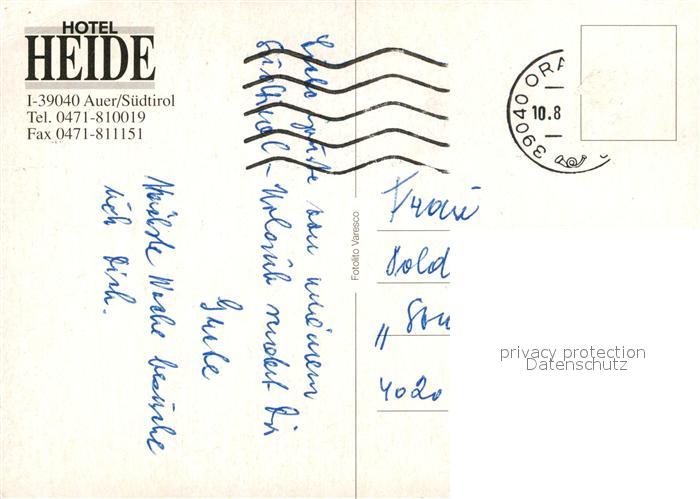 HOTEL
HEIDE
I-39040 Auer/Südtirol
Tel. 0471-810019
Fax 0471-811151
39040 ORA
10.8
Liebe Grüße von meinem
Südtirol-Urlaub sendet Dir
Grete
Nächste Woche besuche
ich Dich.
Fotolito Varesco
Frau
Pold
4020
privacy protection
Datenschutz